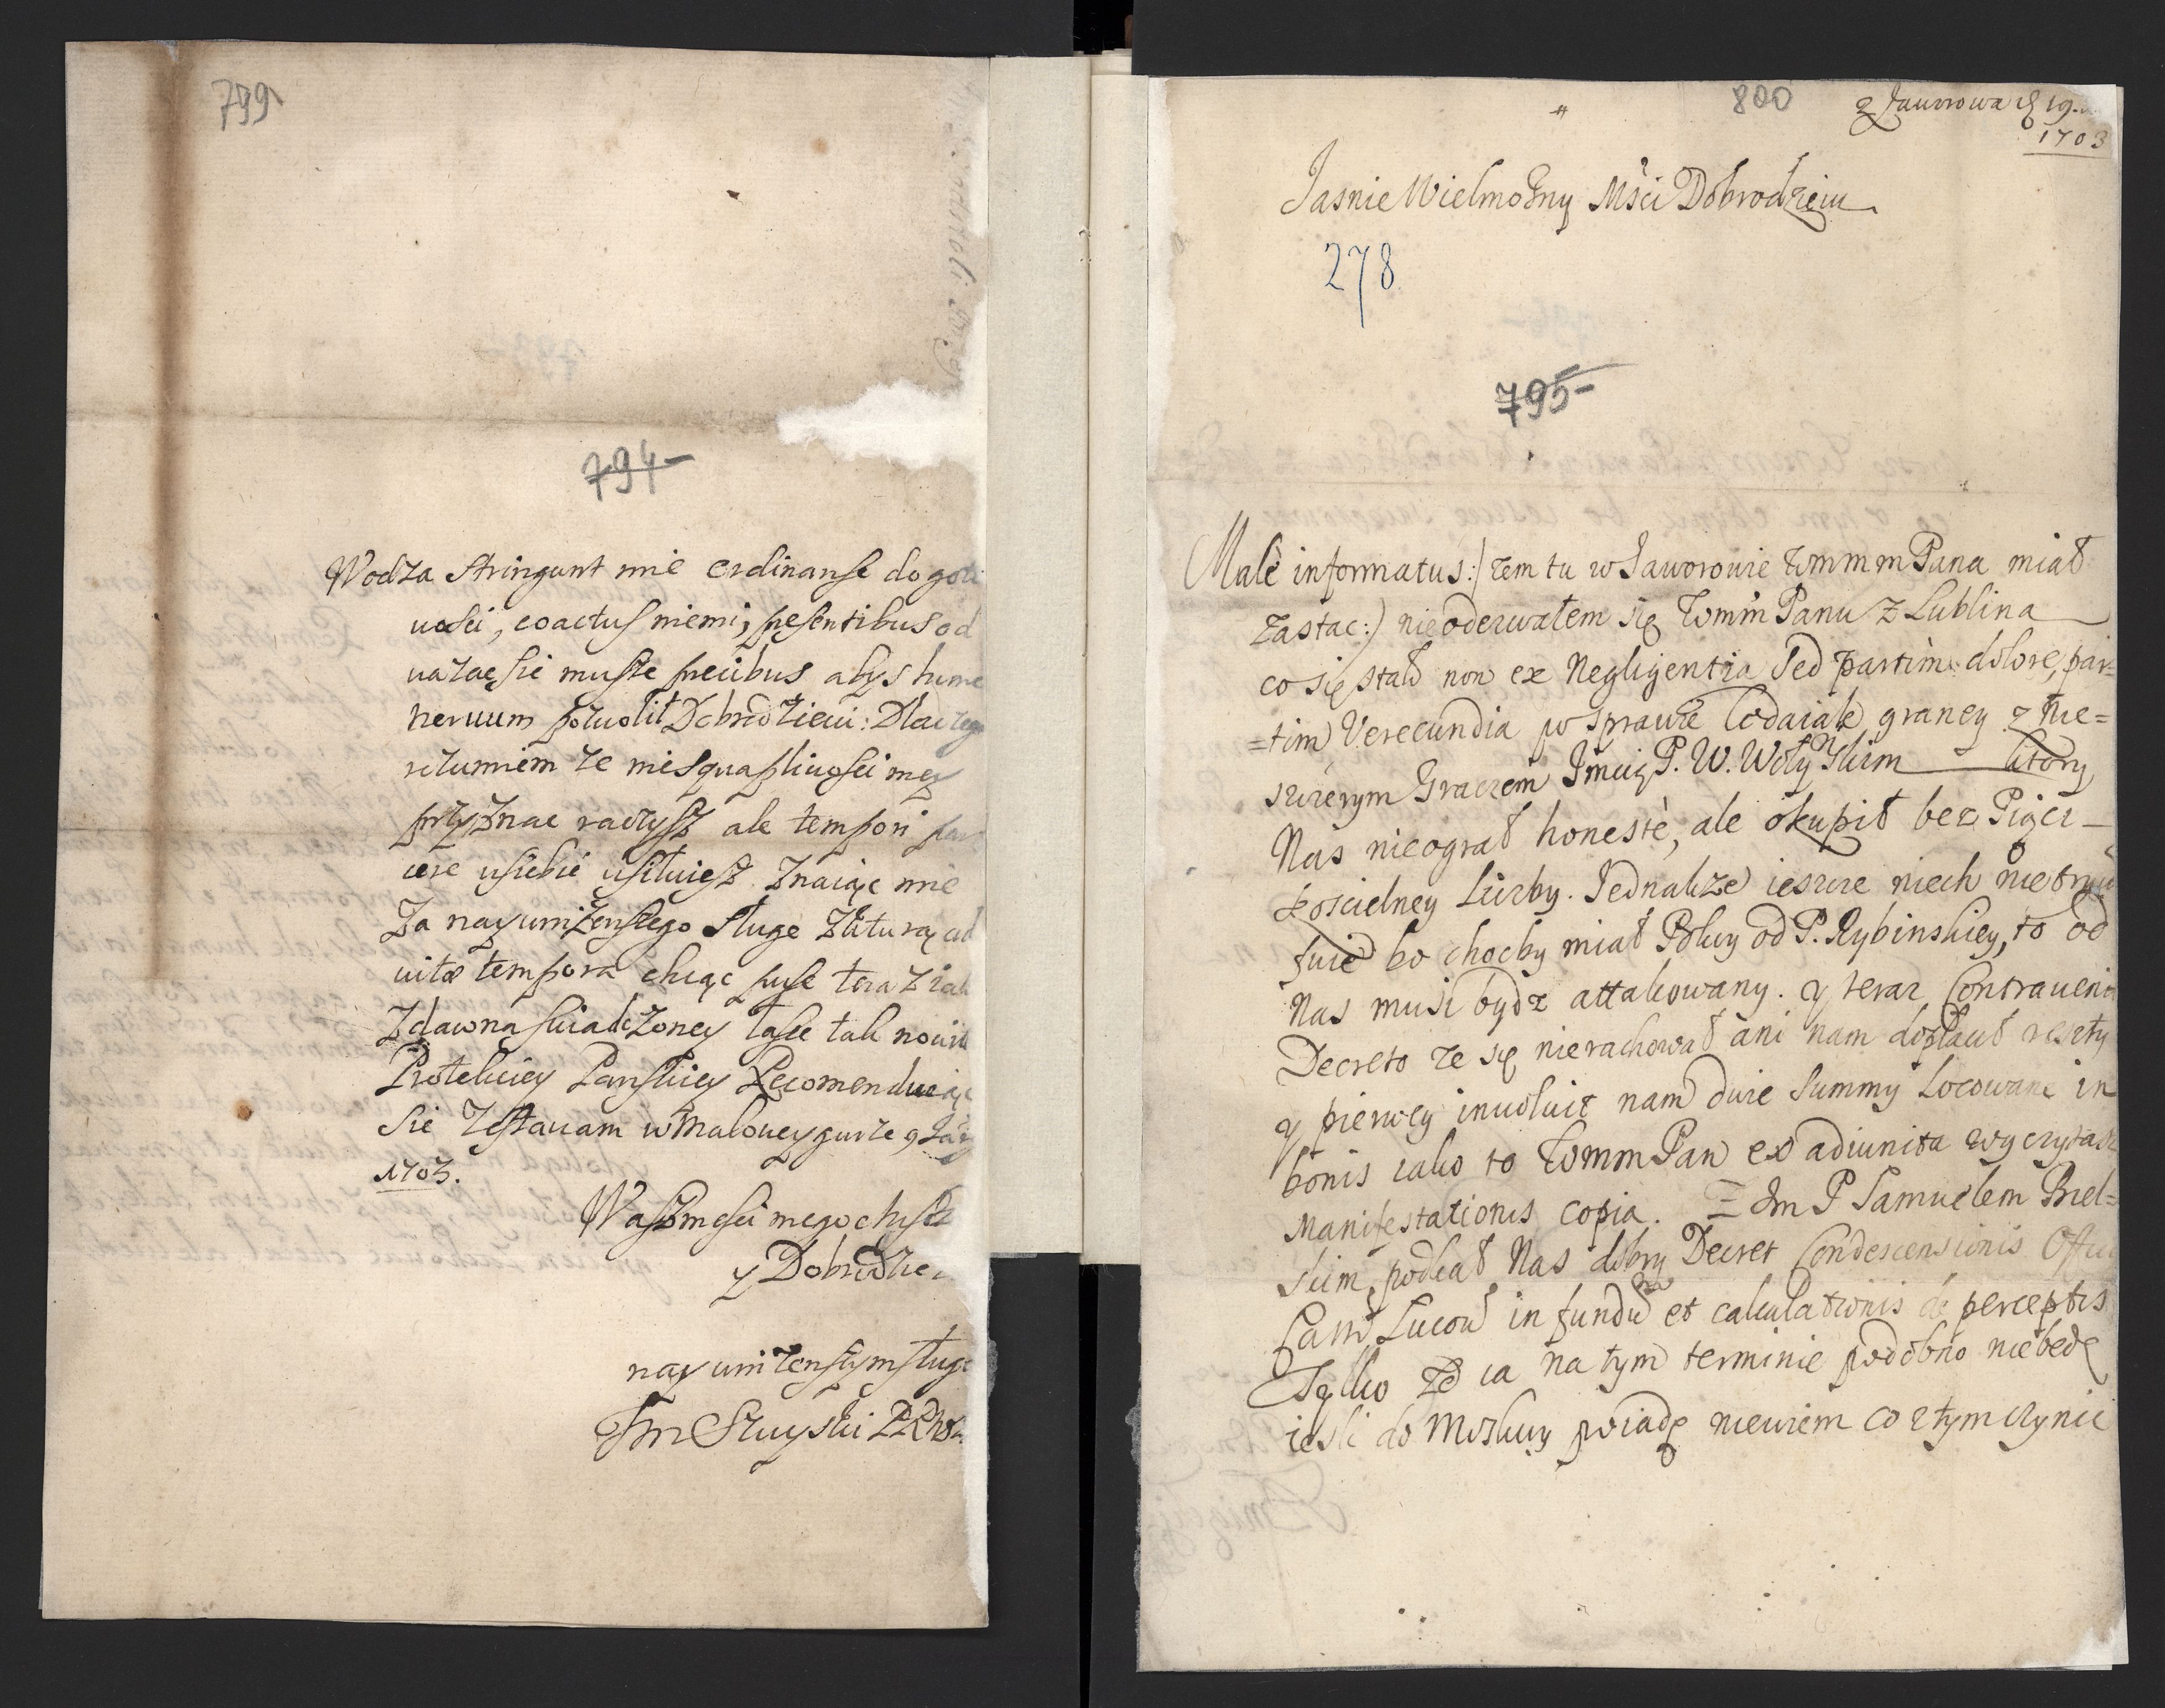 799
794-
Wodza stringunt mie ordinanse do goto
uosci, coactus niemi, presentibus od
uazac sie musze precibus abys hunc
neruum pozuolil Dobrodzieiu: Dla tego
rozumiem ze niesquapliuosci mey
przyznac raczysz ale tempori
usiebie usiluiesz. Znaiąc mie
Za nayunizenszego sługe ad
uitæ tempora chcąc teraz iak
Zdawna suiadczoney łasce tak
Protekciey Panskiey Recomenduiąc
sie Zostauam w Malouey gurze 9
1703.
Waszmosci mego
y Dobrodzie
nayunizenszym sługą
800
z Jaworowa 19.
1703
Jasnie Wielmożny Mści Dobrodzieiu
278
795-
Malè informatus:/ zem tu w Jaworowie Pana miał
zastac:/ nieoderwałem się Panu z Lublina
co się stało non ex Negligentia Sed partim dolore, par=
=tim Verecundia w sprawie graney z nie=
szczerym Graczem Jmcią P. W. Wołynskim ktory
Nas nieograł honestè, ale okupił bez Pięci
koscielney Liczby. Jednakze ieszcze niech nie
bo chocby miał Polwy od P. Rybinskiey, to od
Nas musi bydz attakowany. y teraz Contraueni
Decreto ze się nierachował ani nam dopłacił reszty
y pierwey nam dwie Summy Locowane in
bonis iako to Pan ex adiunita wyczytasz
Manifestationis copia. Im P Samuelem Biel=
skim, Nas dobry Decret Condescensionis
in fundum et calculationis de perceptis
Tylko ze ia na tym terminie podobno niebędę
iesli do Moskwy poiadę niewiem co z tym czynic